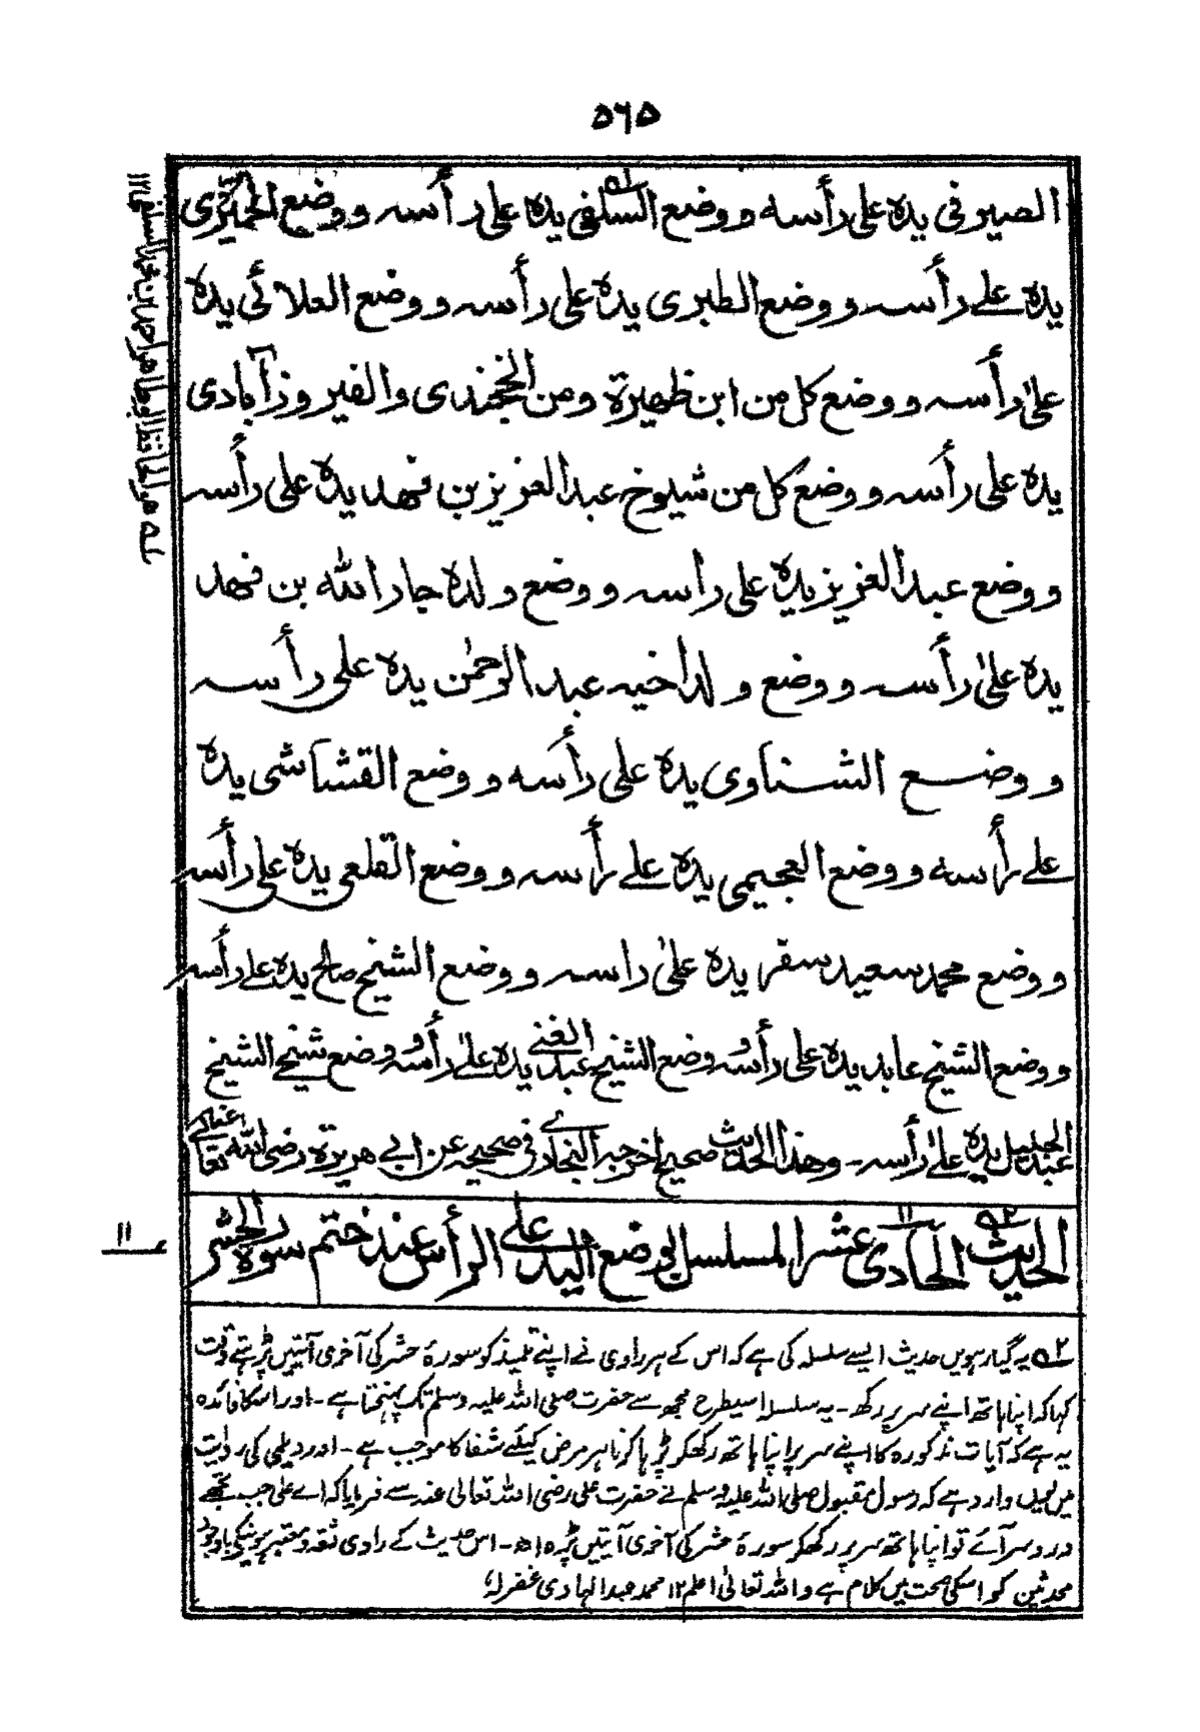 ٥٦٥
الصيرفى يده على رأسه و وضع السلفى يده على رأسه و وضع الحميّرى
يده علے رأسه و وضع الطبرى يده على رأسه و وضع العلائى يده
علىٰ رأسه و وضع كل من ابن ظهيرة و من الخجندى والفيروزآبادى
يده على رأسه و وضع كل من شيوخ عبد العزيز بن فهد يده على رأسه
و وضع عبد العزيز يده على راسه و وضع ولده جار الله بن فهد
يده علىٰ رأسه و وضع ولد اخيه عبد الرحمٰن يده على رأسه
و وضع الشناوى يده على رأسه و وضع القشاشى يده
علے رأسه و وضع العجيمى يده علے رأسه و وضع القلعى يده على رأسه
و وضع محمد سعيد سقر يده علىٰ راسه و وضع الشيخ صالح يده علے رأسه
و وضع الشيخ عابد يده على رأسه و وضع الشيخ عبد الغنے يده علىٰ رأسه و وضع شيخے الشيخ
عبد الجليل يده علىٰ رأسه - وهذا الحديث صحيح اخرجه البخارے فى صحيحه عن ابے هريرة رضى الله تعالےٰ عنه
الحديث الحادى عشر المسلسل بوضع اليد على الرأس عند ختم سورة الحشر
١١
ـه٢ یہ گیارہویں حدیث ایسے سلسلہ کی ہے کہ اس کے ہر راوی نے اپنے تلمیذ کو سورۂ حشر کی آخری آیتیں پڑہتے وقت
کہا کہ اپنا ہاتھ اپنے سر پر رکھ - یہ سلسلہ اسیطرح مجھ سے حضرت صلی اللہ علیہ وسلم تک پہنچتا ہے - اور اسکا فائدہ
یہ ہے کہ آیات مذکورہ کا اپنے سر پر اپنا ہاتھ رکھکر پڑہا کرنا ہر مرض کیلئے شفا کا موجب ہے - اور دیلمی کی روایت
میں یوں وارد ہے کہ رسول مقبول صلی اللہ علیہ وسلم نے حضرت علی رضی اللہ تعالی عنہ سے فرمایا کہ اے علی جب تجھے
درد سر آئے تو اپنا ہاتھ سر پر رکھکر سورۂ حشر کی آخری آیتیں پڑہ اھ - اس حدیث کے راوی ثقہ و معتبر ہونیکے باوجود
محدثین کو اسکی صحت میں کلام ہے واللہ تعالیٰ اعلم ١٢ محمد عبدالہادی غفرلہ